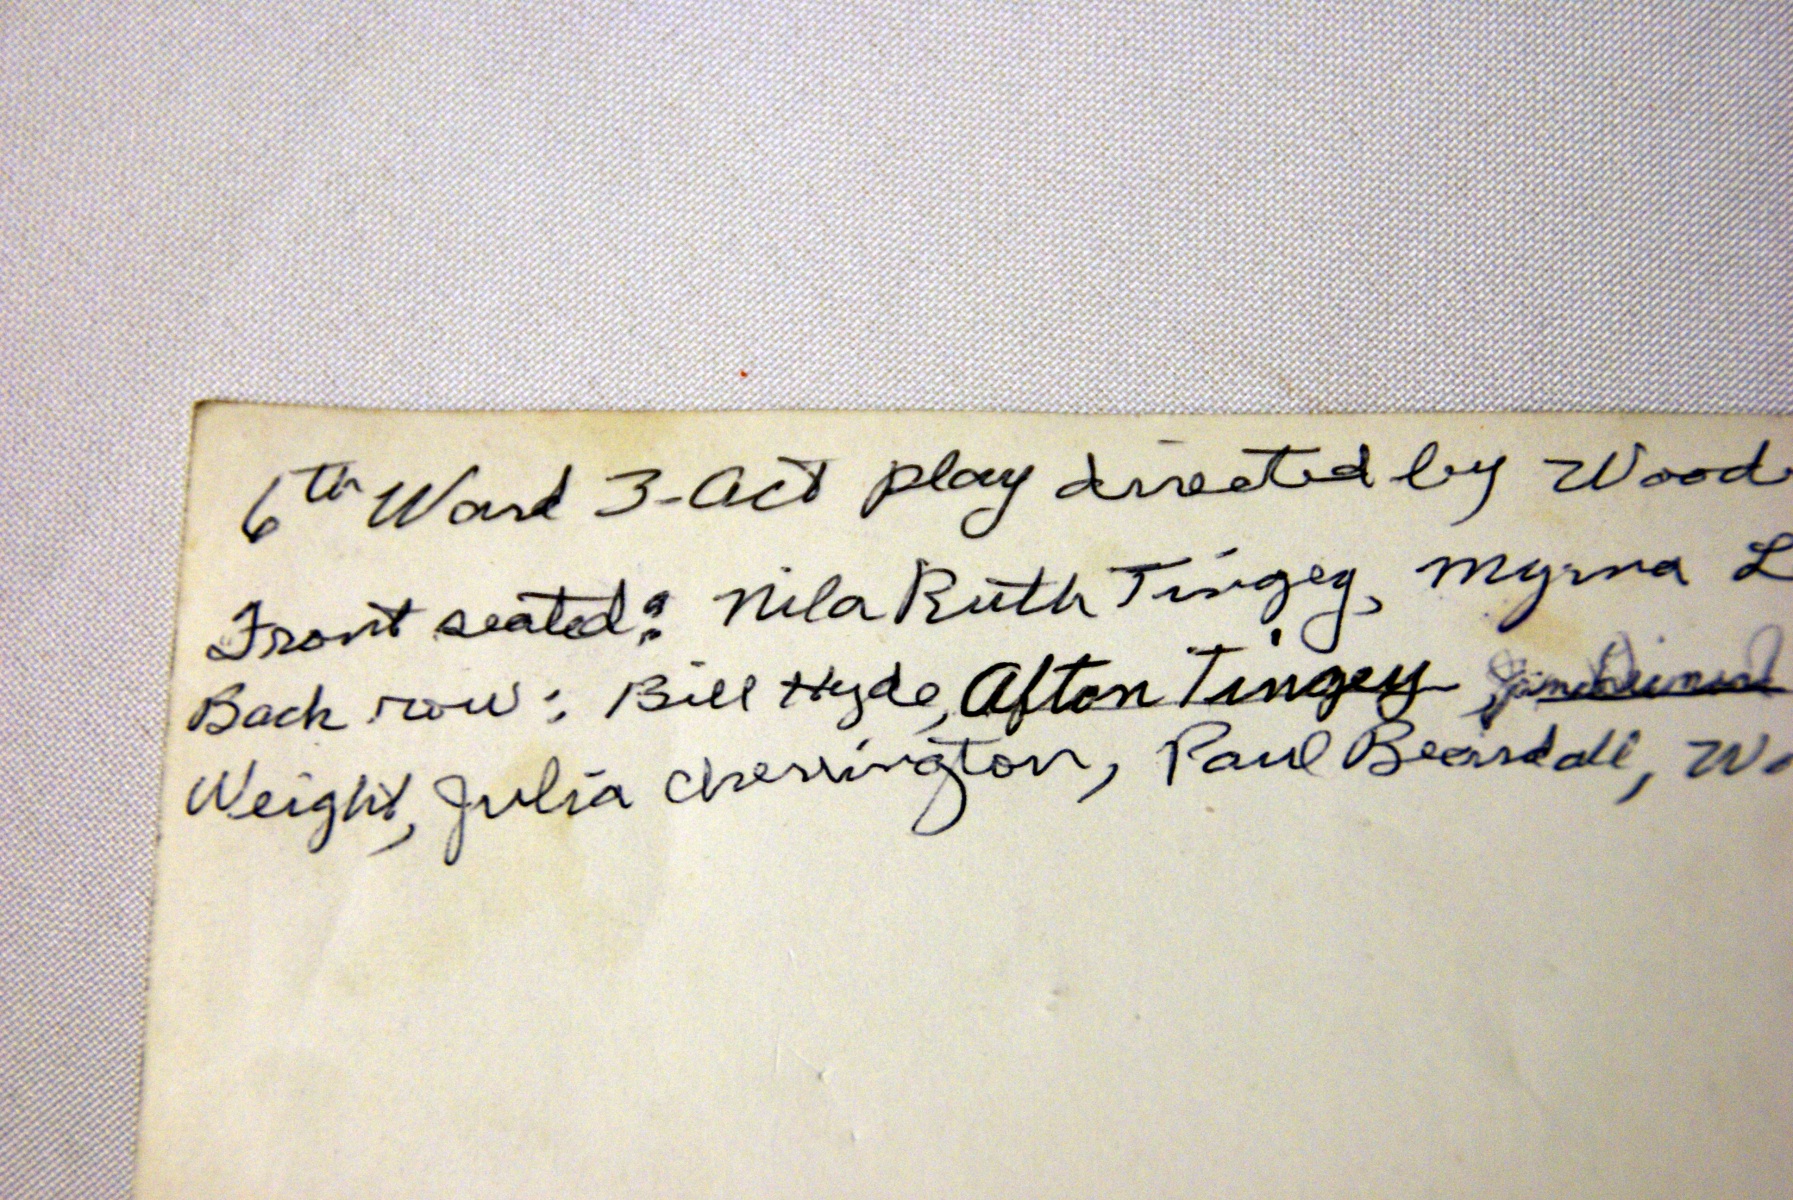 6th Ward 3-Act play directed by Wood
Front seated: Nila Ruth Tingey, Myrna L
Back row: Bill Hyde, Afton Tingey
Weight, Julia Cherrington, Paul Beardall, Wo